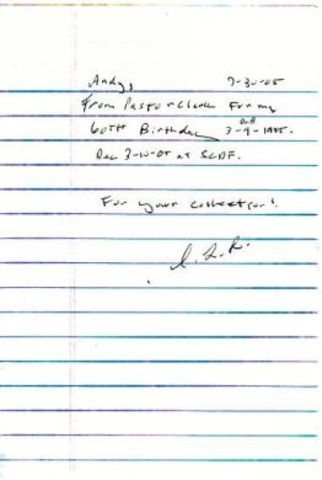 Andy, 7-30-05
From Pastor Clark For my
60TH Birthday DOB 3-9-1945.
Rec 3-10-05 at SCDF.
For your collection!